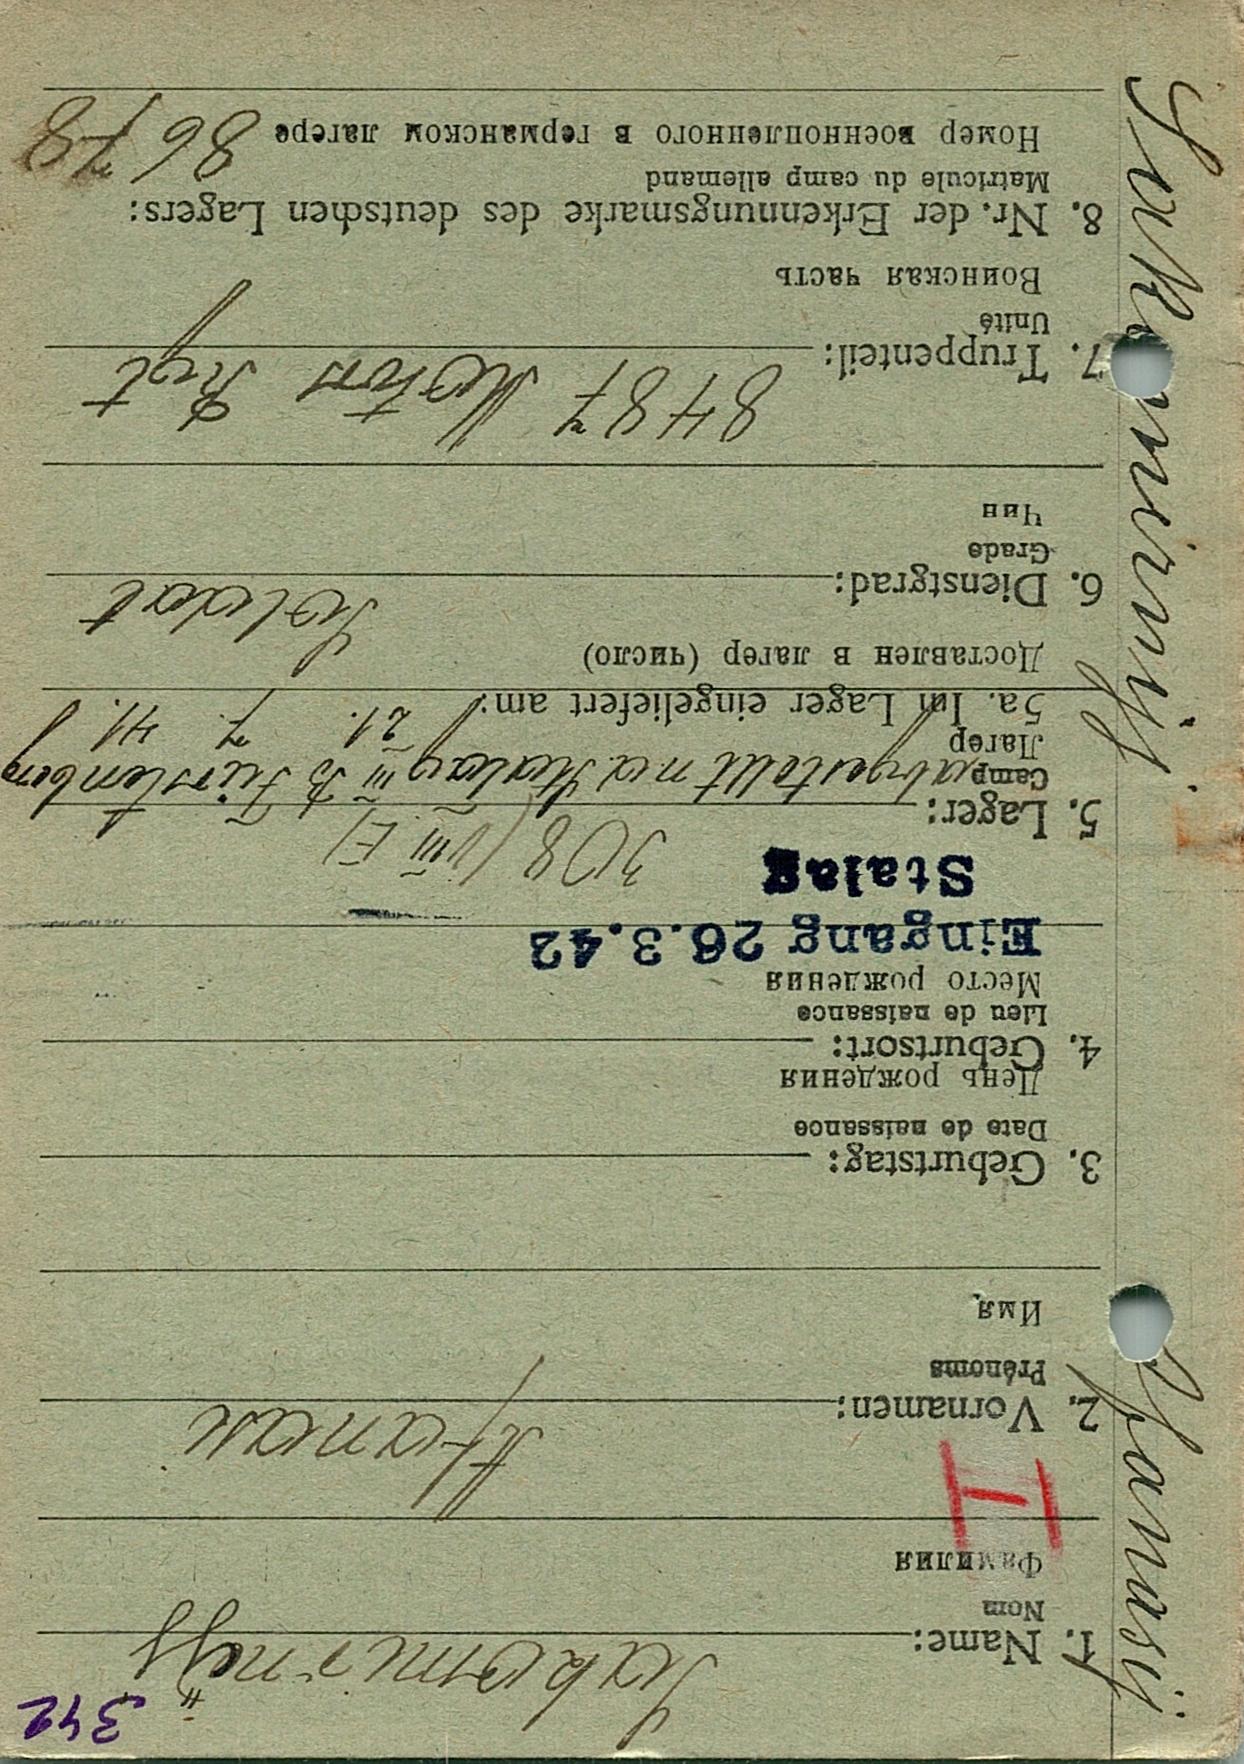 342
1. Name: Lakomirnyj
Nom
Фамилия
I
2. Vornamen: Afanasi
Prénoms
Имя
3. Geburtstag:
Date de naissance
День рождения
4. Geburtsort:
Lieu de naissance
Место рождения
Eingang 26.3.42
Stalag
308 (VIII E)
5. Lager: Stalag III B Fürstenberg
Camp
Лагер
5a. Im Lager eingeliefert am: 21. 7. 41.
Доставлен в лагер (число)
6. Dienstgrad: Soldat
Grade
Чин
7. Truppenteil: 8487 Motor Regt
Unité
Воинская часть
8. Nr. der Erkennungsmarke des deutschen Lagers:
Matricule du camp allemand
Номер военнопленного в германском лагере 8678
Afanasij